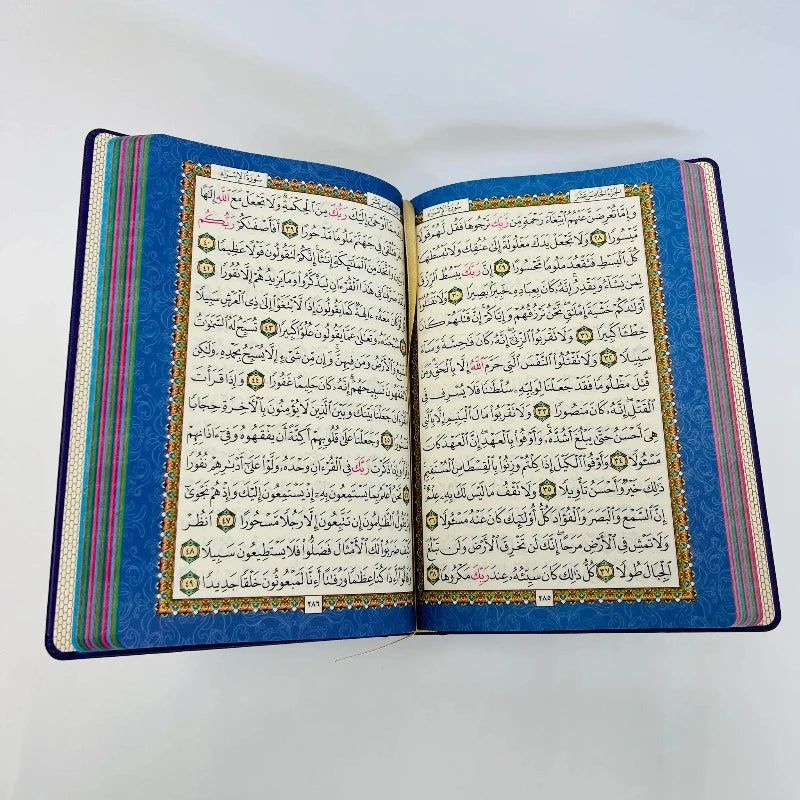 الجزء الخامس عشر سورة الإسراء
وَإِمَّا تُعْرِضَنَّ عَنْهُمُ ٱبْتِغَآءَ رَحْمَةٍ مِّن رَّبِّكَ تَرْجُوهَا فَقُل لَّهُمْ قَوْلًا
مَّيْسُورًا ٢٨ وَلَا تَجْعَلْ يَدَكَ مَغْلُولَةً إِلَىٰ عُنُقِكَ وَلَا تَبْسُطْهَا
كُلَّ ٱلْبَسْطِ فَتَقْعُدَ مَلُومًا مَّحْسُورًا ٢٩ إِنَّ رَبَّكَ يَبْسُطُ ٱلرِّزْقَ
لِمَن يَشَآءُ وَيَقْدِرُ إِنَّهُۥ كَانَ بِعِبَادِهِۦ خَبِيرًۢا بَصِيرًا ٣٠ وَلَا تَقْتُلُوٓا۟
أَوْلَٰدَكُمْ خَشْيَةَ إِمْلَٰقٍ نَّحْنُ نَرْزُقُهُمْ وَإِيَّاكُمْ إِنَّ قَتْلَهُمْ كَانَ
خِطْـًٔا كَبِيرًا ٣١ وَلَا تَقْرَبُوا۟ ٱلزِّنَىٰٓ إِنَّهُۥ كَانَ فَٰحِشَةً وَسَآءَ
سَبِيلًا ٣٢ وَلَا تَقْتُلُوا۟ ٱلنَّفْسَ ٱلَّتِى حَرَّمَ ٱللَّهُ إِلَّا بِٱلْحَقِّ وَمَن
قُتِلَ مَظْلُومًا فَقَدْ جَعَلْنَا لِوَلِيِّهِۦ سُلْطَٰنًا فَلَا يُسْرِف فِّى
ٱلْقَتْلِ إِنَّهُۥ كَانَ مَنصُورًا ٣٣ وَلَا تَقْرَبُوا۟ مَالَ ٱلْيَتِيمِ إِلَّا بِٱلَّتِى
هِىَ أَحْسَنُ حَتَّىٰ يَبْلُغَ أَشُدَّهُۥ وَأَوْفُوا۟ بِٱلْعَهْدِ إِنَّ ٱلْعَهْدَ كَانَ
مَسْـُٔولًا ٣٤ وَأَوْفُوا۟ ٱلْكَيْلَ إِذَا كِلْتُمْ وَزِنُوا۟ بِٱلْقِسْطَاسِ ٱلْمُسْتَقِيمِ
ذَٰلِكَ خَيْرٌ وَأَحْسَنُ تَأْوِيلًا ٣٥ وَلَا تَقْفُ مَا لَيْسَ لَكَ بِهِۦ عِلْمٌ
إِنَّ ٱلسَّمْعَ وَٱلْبَصَرَ وَٱلْفُؤَادَ كُلُّ أُو۟لَٰٓئِكَ كَانَ عَنْهُ مَسْـُٔولًا ٣٦
وَلَا تَمْشِ فِى ٱلْأَرْضِ مَرَحًا إِنَّكَ لَن تَخْرِقَ ٱلْأَرْضَ وَلَن تَبْلُغَ
ٱلْجِبَالَ طُولًا ٣٧ كُلُّ ذَٰلِكَ كَانَ سَيِّئُهُۥ عِندَ رَبِّكَ مَكْرُوهًا ٣٨
٢٨٥
سورة الإسراء
أَوْحَىٰٓ إِلَيْكَ رَبُّكَ مِنَ ٱلْحِكْمَةِ وَلَا تَجْعَلْ مَعَ ٱللَّهِ إِلَٰهًا
فَتُلْقَىٰ فِى جَهَنَّمَ مَلُومًا مَّدْحُورًا ٣٩ أَفَأَصْفَىٰكُمْ رَبُّكُم
وَٱتَّخَذَ مِنَ ٱلْمَلَٰٓئِكَةِ إِنَٰثًا إِنَّكُمْ لَتَقُولُونَ قَوْلًا عَظِيمًا ٤٠
صَرَّفْنَا فِى هَٰذَا ٱلْقُرْءَانِ لِيَذَّكَّرُوا۟ وَمَا يَزِيدُهُمْ إِلَّا نُفُورًا ٤١
كَانَ مَعَهُۥٓ ءَالِهَةٌ كَمَا يَقُولُونَ إِذًا لَّٱبْتَغَوْا۟ إِلَىٰ ذِى ٱلْعَرْشِ سَبِيلًا
وَتَعَٰلَىٰ عَمَّا يَقُولُونَ عُلُوًّا كَبِيرًا ٤٣ تُسَبِّحُ لَهُ ٱلسَّمَٰوَٰتُ
وَٱلْأَرْضُ وَمَن فِيهِنَّ وَإِن مِّن شَىْءٍ إِلَّا يُسَبِّحُ بِحَمْدِهِۦ وَلَٰكِن
تَفْقَهُونَ تَسْبِيحَهُمْ إِنَّهُۥ كَانَ حَلِيمًا غَفُورًا ٤٤ وَإِذَا قَرَأْتَ
ٱلْقُرْءَانَ جَعَلْنَا بَيْنَكَ وَبَيْنَ ٱلَّذِينَ لَا يُؤْمِنُونَ بِٱلْءَاخِرَةِ حِجَابًا
مَّسْتُورًا ٤٥ وَجَعَلْنَا عَلَىٰ قُلُوبِهِمْ أَكِنَّةً أَن يَفْقَهُوهُ وَفِىٓ ءَاذَانِهِمْ
وَإِذَا ذَكَرْتَ رَبَّكَ فِى ٱلْقُرْءَانِ وَحْدَهُۥ وَلَّوْا۟ عَلَىٰٓ أَدْبَٰرِهِمْ نُفُورًا
نَّحْنُ أَعْلَمُ بِمَا يَسْتَمِعُونَ بِهِۦٓ إِذْ يَسْتَمِعُونَ إِلَيْكَ وَإِذْ هُمْ نَجْوَىٰٓ
يَقُولُ ٱلظَّٰلِمُونَ إِن تَتَّبِعُونَ إِلَّا رَجُلًا مَّسْحُورًا ٤٧ ٱنظُرْ
كَيْفَ ضَرَبُوا۟ لَكَ ٱلْأَمْثَالَ فَضَلُّوا۟ فَلَا يَسْتَطِيعُونَ سَبِيلًا ٤٨
وَقَالُوٓا۟ أَءِذَا كُنَّا عِظَٰمًا وَرُفَٰتًا أَءِنَّا لَمَبْعُوثُونَ خَلْقًا جَدِيدًا ٤٩
٢٨٦